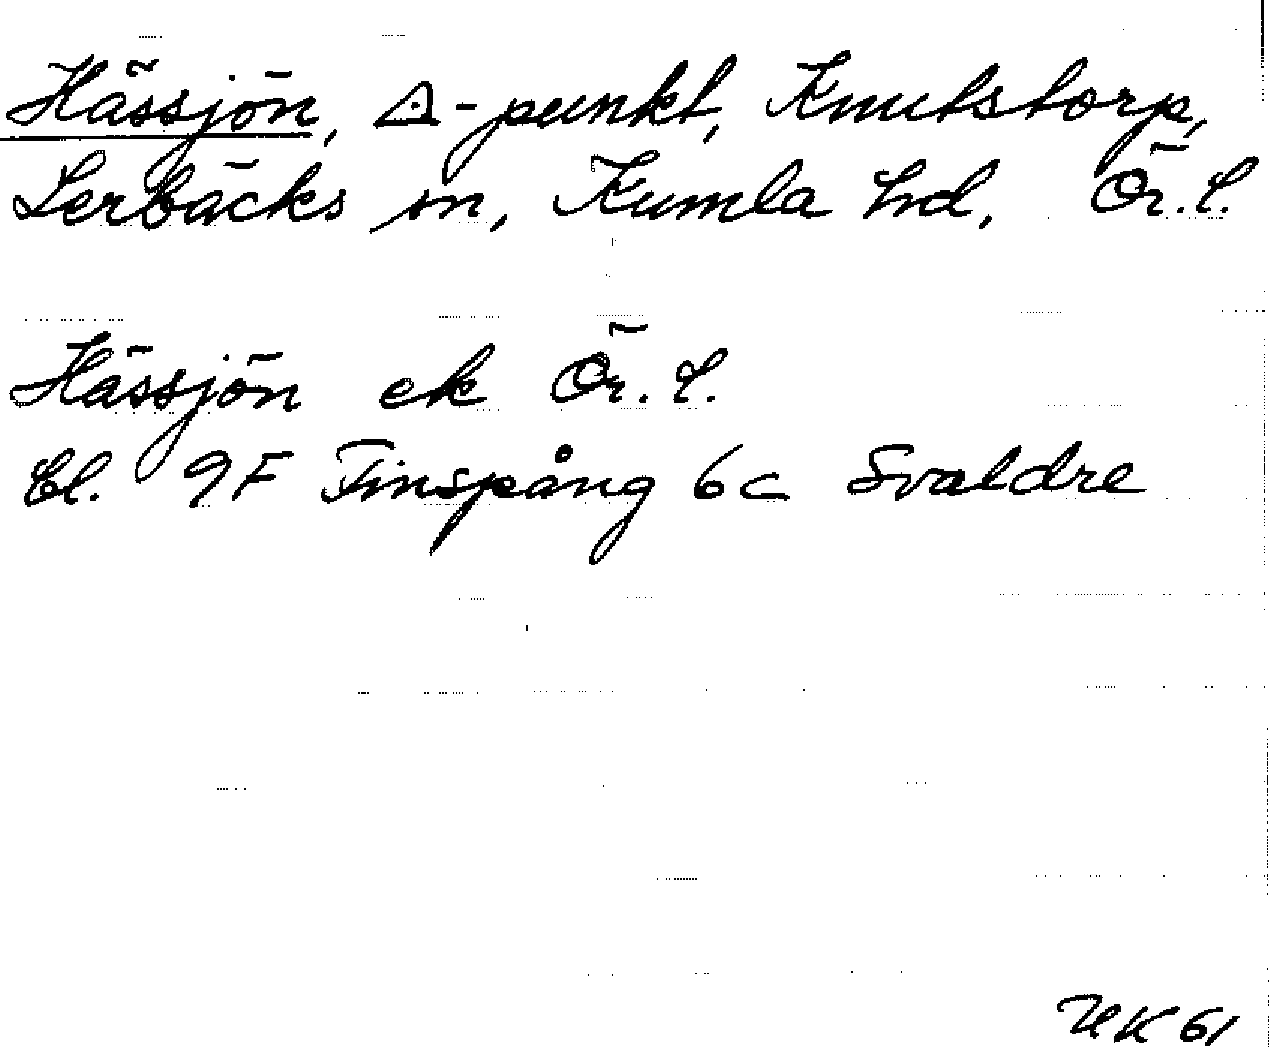 Hässjön, △-punkt, Knutstorp,
Lerbäcks sn, Kumla hd, Ör. l.
Hässjön ek Ör. l.
Bl. 9F Finspång 6c Svaldre
UK 61